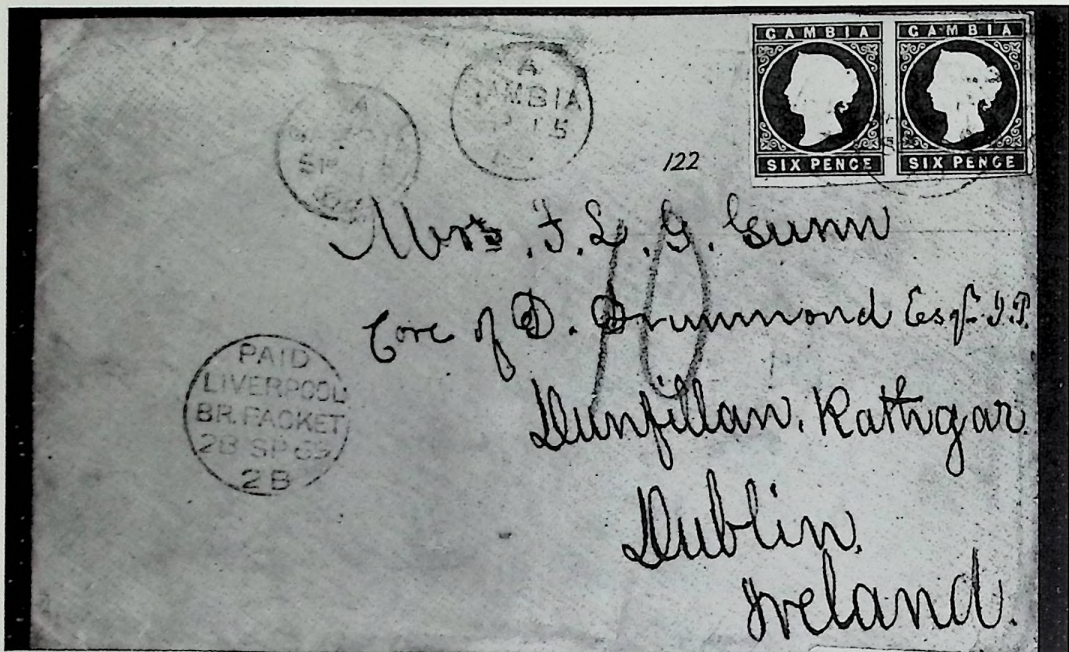 GAMBIA GAMBIA
SIX PENCE SIX PENCE
A
GAMBIA
SP 15
A
122
Mrs. F. L. G. Gunn
Care of D. Drummond Esqr. J.P.
Dunfillan. Rathgar
Dublin.
Ireland.
10
PAID
LIVERPOOL
BR. PACKET
28 SP 69
2B